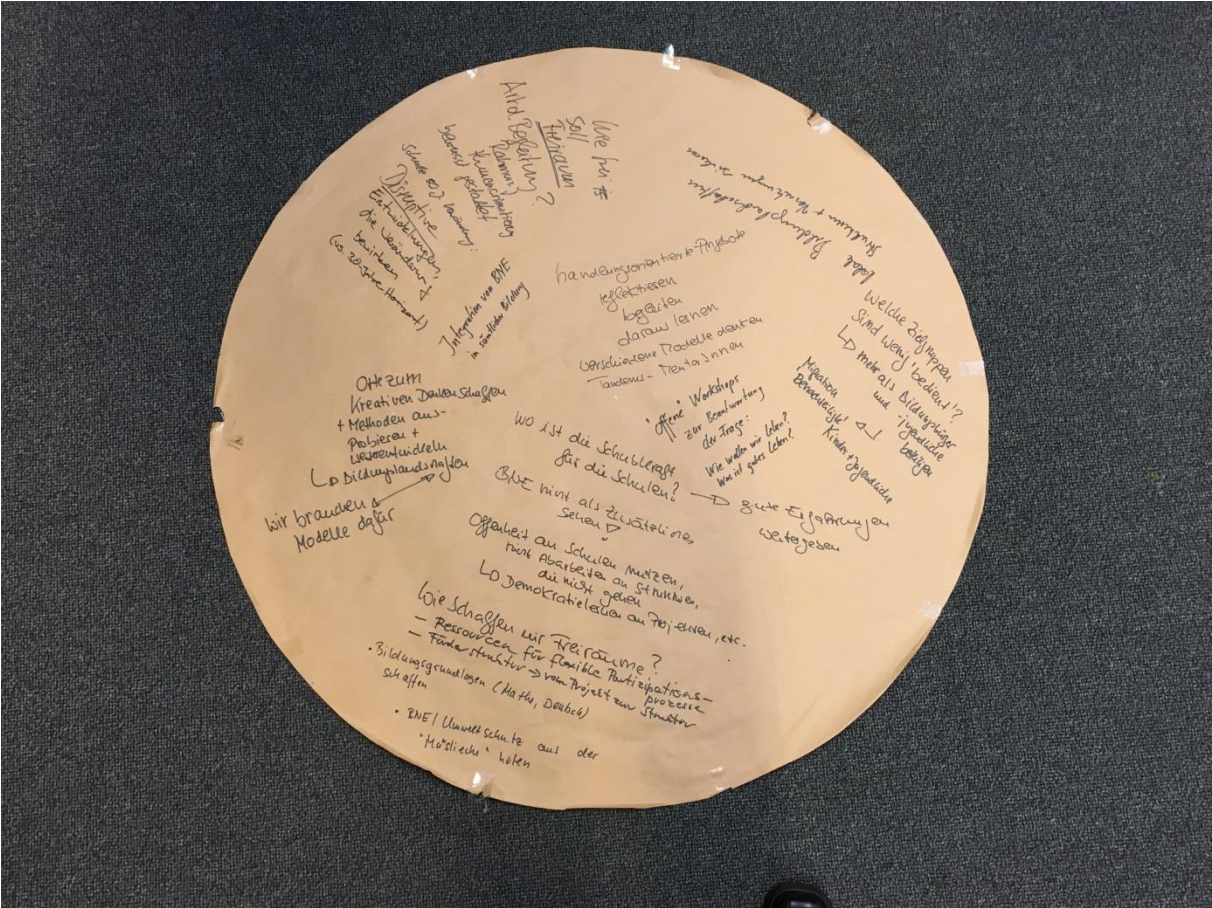 Wie frei
soll
Freiraum
Art d. Begleitung?
Rahmung
Themeninitiierung
bewusst gestaltet
Schule 2007 unterwegs:
Disruptive
Entwicklungen,
die Veränderung
bewirken
(vs. 30-Jahre Horizont)
Integration von BNE
in sämtliche Bildung
lokale Bildungslandschaften
Strukturen + Vernetzungen
handlungsorientierte Projekte
reflektieren
begleiten
daraus lernen
verschiedene Modelle denken
Tandems - MentorInnen
Welche Zielgruppen
sind wenig 'bedient'?
↳ mehr als Bildungsbürger
und -jugendliche
beteiligen
Migration
Benachteiligte
Kinder + Jugendliche
"offene" Workshops
zur Beantwortung
der Frage:
Wie wollen wir leben?
Was ist gutes Leben?
Orte zum
Kreativen Denken schaffen
+ Methoden aus-
probieren +
weiterentwickeln
↳ Bildungslandschaften
Wir brauchen
Modelle dafür
Wo ist die Schubkraft
für die Schulen? → gute Erfahrungen
weitergeben
BNE nicht als Zusätzliches
sehen!
Offenheit an Schulen nutzen,
nicht Abarbeiten an Strukturen,
die nicht gehen
↳ Demokratielernen an Projekten, etc.
Wie schaffen wir Freiräume?
- Ressourcen für flexible Partizipations-
prozesse
- Förderstruktur → vom Projekt zur Struktur
• Bildungsgrundlagen (Mathe, Deutsch)
schaffen
• BNE / Umweltschutz aus der
"Müsliecke" holen